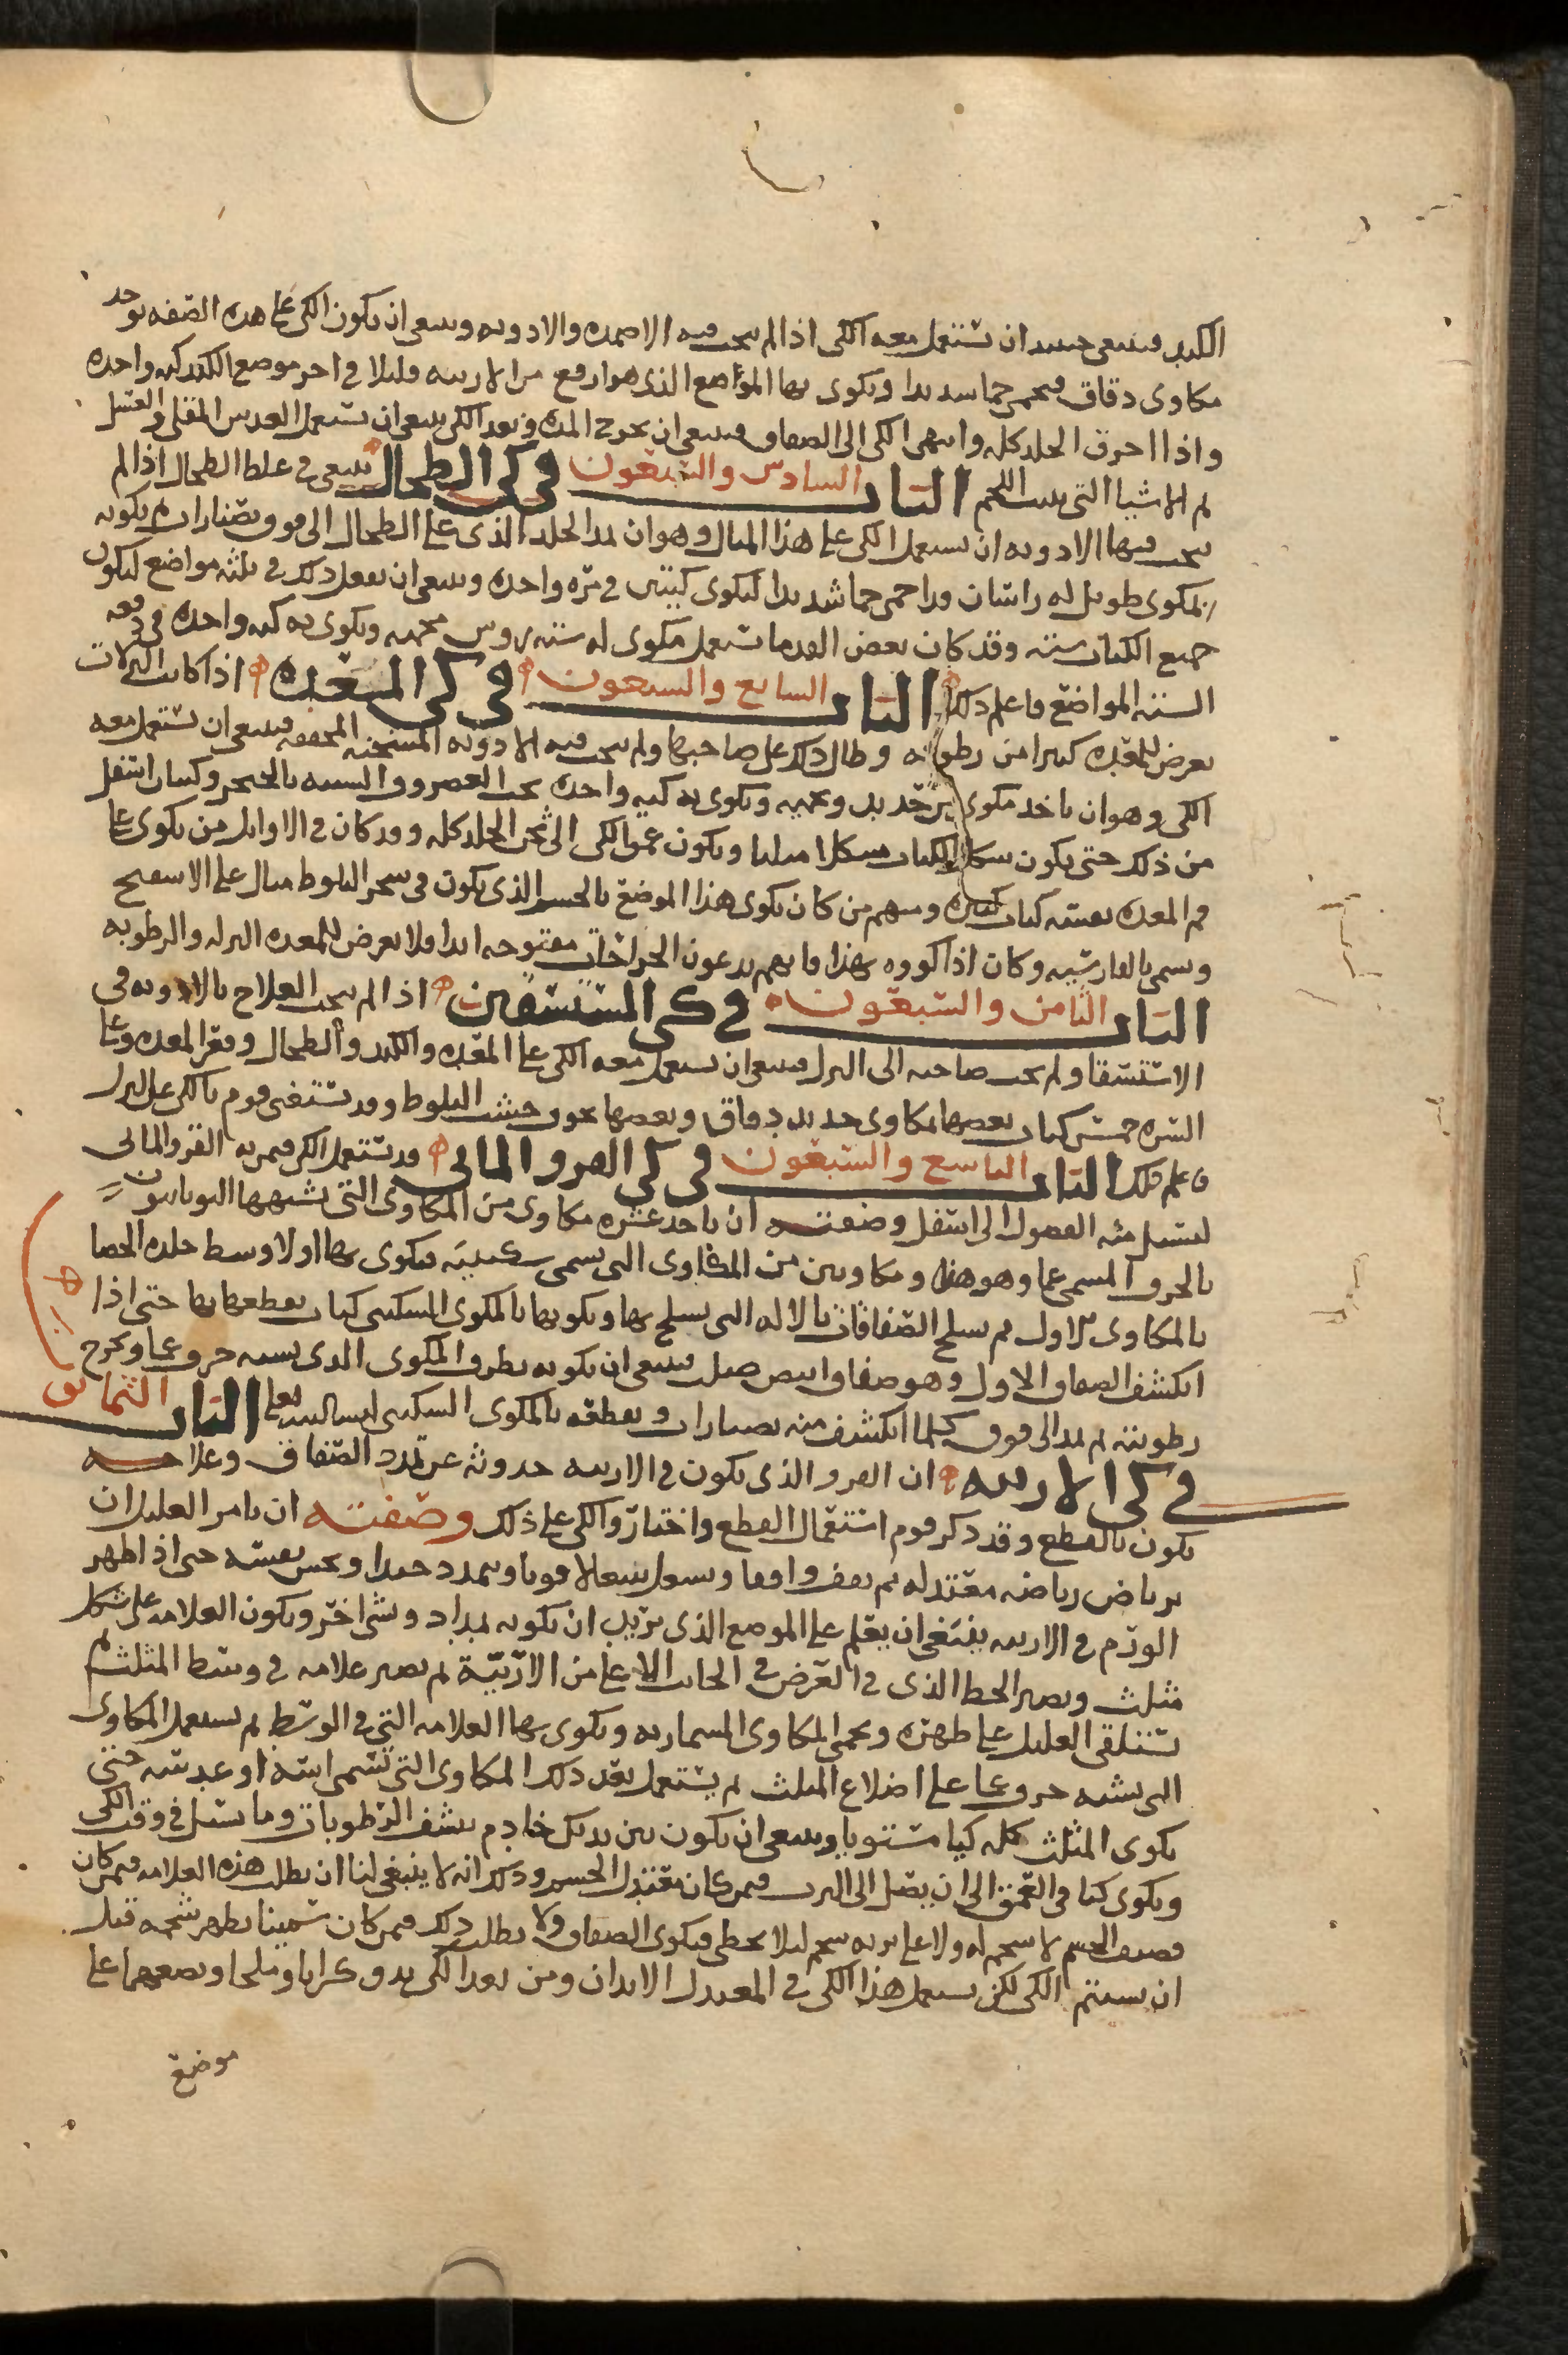 الكبد فينبغى حينيد ان تستعمل معه الكى اذا لم ينجب فيه الاضمده والادويه وينبغى ان يكون الكى على هذه الصفه يوخذ
مكاوى دقاق فتحمى حما شديدا ويكوى بها المواضع الذى هو ارفع من الاربيه قليلا فى اخر موضع الكبد كيه واحده
واذا احرق الجلد كله وانتهى الكى الى الصفاق فينبغى ان يخرج المده وبعد الكى ينبغى ان تستعمل العدس المقلى والعسل
ثم الاشيا التى تنبت اللحم الباب السادس والسبعون فى كى الطحال ينبغى فى غلظ الطحال اذا لم
ينجب فيها الادويه ان يستعمل الكى على هذا المثال وهو ان يمد الجلد الذى على الطحال الى فوق بصنارات ثم يكويه
بمكوى طويل له راسان قد احمى حما شديدا ليكوى كيتين فى مره واحده وينبغى ان يفعل ذلك فى ثلثه مواضع ليكون
جميع الكيات سته وقد كان بعض القدما تستعمل مكوى له سته روس محميه ويكوى به كيه واحده فى دفعه
السته المواضع فاعلم ذلك الباب السابع والسبعون فى كى المعده اذا كانت النزلات
تعرض للمعده كثيرا من رطوبه وطال ذلك على صاحبها ولم ينجب فيه الادويه المسخنه المجففه فينبغى ان تستعمل معه
الكى وهو ان ياخذ مكوى من حديد ويحميه ويكوى به كيه واحده تحت الغضروف الشبيه بالخنجر وكيتان اسفل
من ذلك حتى يكون شكل الكيات مشكلا مثلثا ويكون عمق الكى الى ثخن الجلد كله وقد كان فى الاوايل من يكوى على
فم المعده نفسه كيات كثيره ومنهم من كان يكوى هذا الموضع بالجسم الذى يكون فى شجر البلوط مثال على الاسفنج
وسمى بالفارسيه وكان اذا كووه بهذا فانهم يدعون الجراحات مفتوحه ابدا فلا يعرض للمعده النزله والرطوبه
الباب الثامن والسبعون فى كى المستسقين اذا لم ينجب العلاج بالادويه فى
الاستسقا ولم يحب صاحبه الى البزل فينبغى ان يستعمل معه الكى على المعده والكبد والطحال وقعر المعده وعلى
السره خمس كيات بعضها بمكاوى حديد دقاق وبعضها بحرق خشب البلوط وقد تستغنى قوم بالكى على البزل
فاعلم ذلك الباب التاسع والسبعون فى كى القرو المايى قد تستعمل الكى فيمن به القرو المايى
لتسيل منه الفضول الى اسفل وصفته ان ياخذ عشره مكاوى من المكاوى التى تشبهها اليونانيون
بالحرف المسمى غما وهو هذا ومكاوين من المكاوى التى تسمى سكينيه فيكوى بها اولا وسط جلده الخصا
بالمكاوى الاول ثم يسلخ الصفاقات بالاله التى يسلخ بها ويكويها بالمكوى السكينى كيات يقطعها بها حتى اذا
انكشف الصفاق الاول وهو صفاق ابيض صلب فينبغى ان يكويه بطرف المكوى الذى يشبه حرف غما ويخرج
رطوبته ثم يمد الى فوق كلما انكشف منه بصنارات ويقطعه بالمكوى السكينى الباب الثمانون
فى كى الاربيه ان القرو الذى يكون فى الاربيه حدوثه عن تمدد الصفاق وعلاجه
يكون بالقطع وقد ذكر قوم استعمال القطع واختاروا الكى على ذلك وصفته ان يامر العليل ان
يرتاض رياضه معتدله ثم يقف واقفا ويسعل سعالا قويا ويتمدد جيدا ويحبس نفسه حتى اذا ظهر
الورم فى الاربيه ينبغى ان يعلم على الموضع الذى تريد ان يكويه بمداد وشى اخر ويكون العلامه على شكل
مثلث ويصير الخط الذى فى العرض فى الجانب الاعلى من الاربية ثم يصير علامه فى وسط المثلث ثم
تستلقى العليل على ظهره ويحمى المكاوى المسماريه ويكوى بها العلامه التى فى الوسط ثم يستعمل المكاوى
التى تشبه حرف غما على اضلاع المثلث ثم يستعمل بعد ذلك المكاوى التى تسمى استه او عدسيه حتى
يكوى المثلث كله كيا مستويا وينبغى ان يكون بين يديك خادم ينشف الرطوبات وما يسيل فى وقت الكى
ويكوى كيا فى العمق الى ان يصل الى الثرب فيمن كان معتدل الجسم وذلك انه لا ينبغى لنا ان يطلب هذه العلامه فيمن كان
قصيف الجسم لا شحم له ولا على ثربه شحم ليلا يخطى فيكوى الصفاق ولا يطلب ذلك فيمن كان سمينا يظهر شحمه قبل
ان يستتم الكى لكن يستعمل هذا الكى فى المعتدل الابدان ومن بعد الكى يدق كراثا وملحا ويضعهما على
موضع